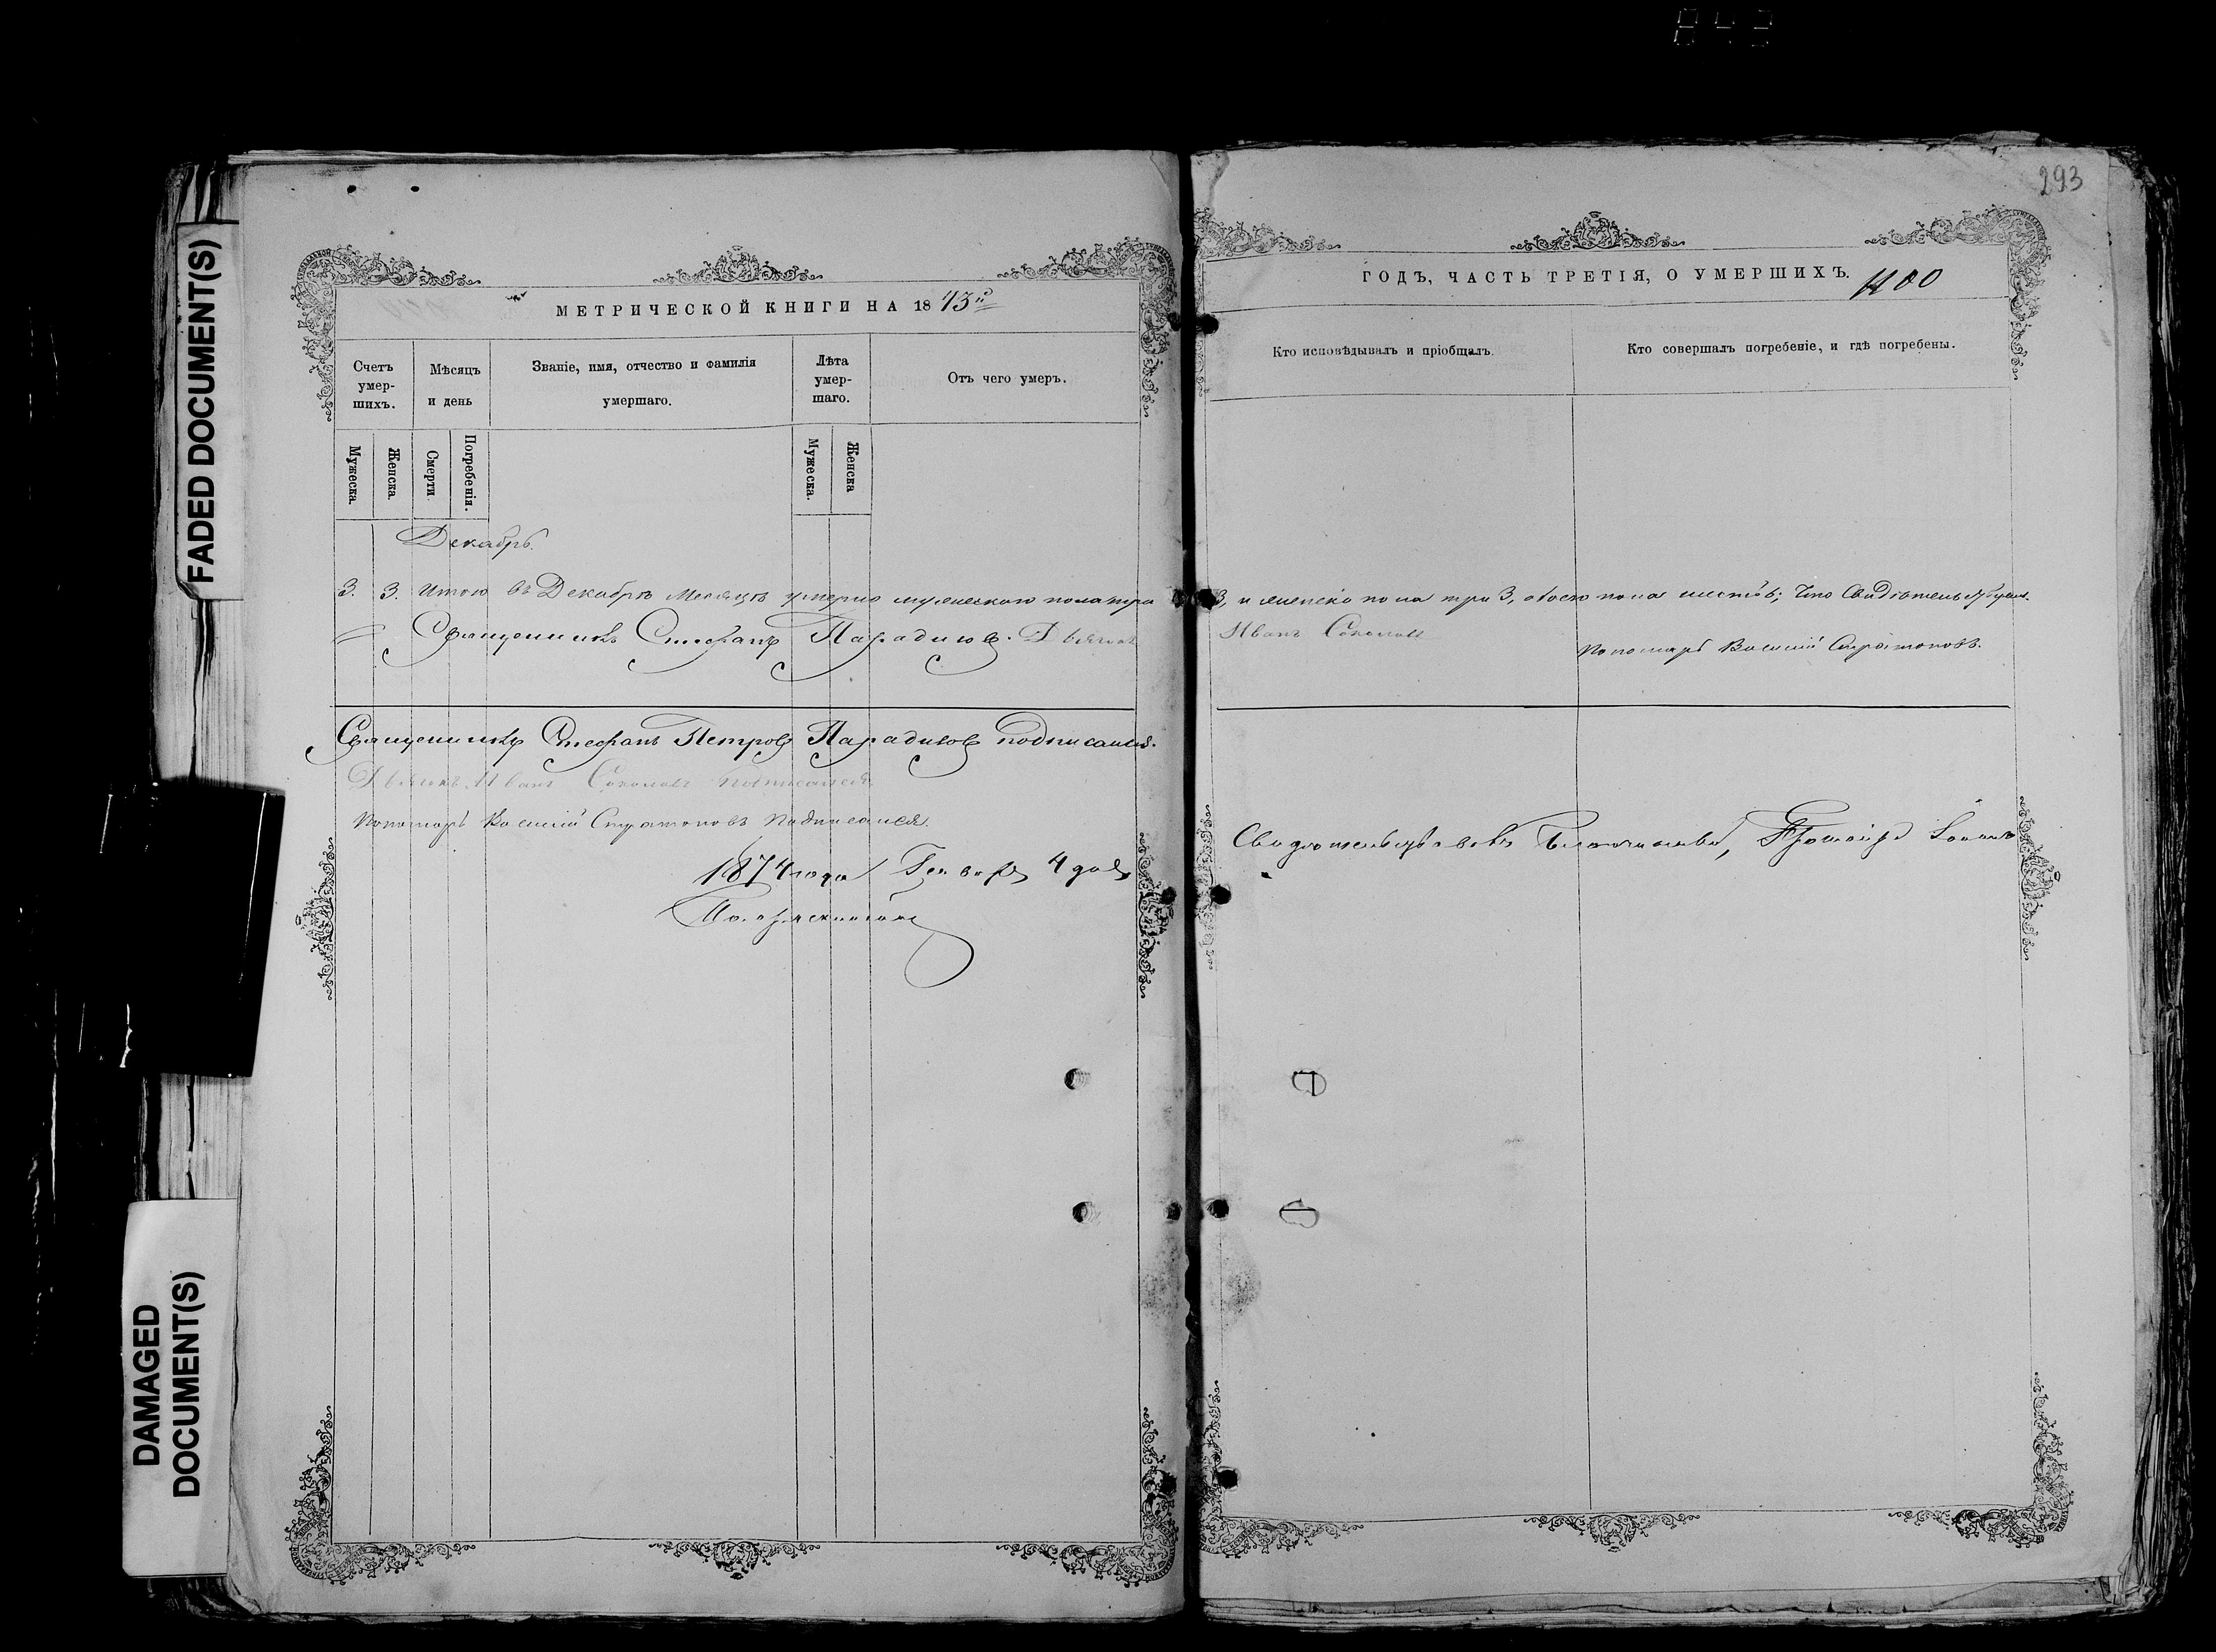 293
FADED DOCUMENT(S)
DAMAGED
DOCUMENT(S)
МЕТРИЧЕСКОЙ КНИГИ НА 1873й
Счетъ
умер-
шихъ.
Мѣсяцъ
и день
Званіе, имя, отчество и фамилія
умершаго.
Лѣта
умер-
шаго.
Отъ чего умеръ.
Мужеска.
Женска.
Смерти.
Погребенія.
Мужеска.
Женска
Декабрь.
3. 3. Итого въ Декабрѣ Месяцѣ умерло мужескаго пола три
Священникъ Стефанъ Парадизов. Дьячокъ
Священникъ Стефанъ Петровъ Парадизов подписался.
Дьячокъ Иванъ Соколовъ подписался.
Пономарь Василій Стратоновъ подписался.
1874 года Генваря 4 дня
ГОДЪ, ЧАСТЬ ТРЕТІЯ, О УМЕРШИХЪ. 1100
Кто исповѣдывалъ и пріобщалъ.
Кто совершалъ погребеніе, и гдѣ погребены.
3, и женска пола три 3, обоего пола шесть; Что свидѣтельствуемъ.
Иванъ Соколовъ
Пономарь Василій Стратоновъ.
Свидѣтельствовалъ Благочинный, Протоіерей Іоаннъ